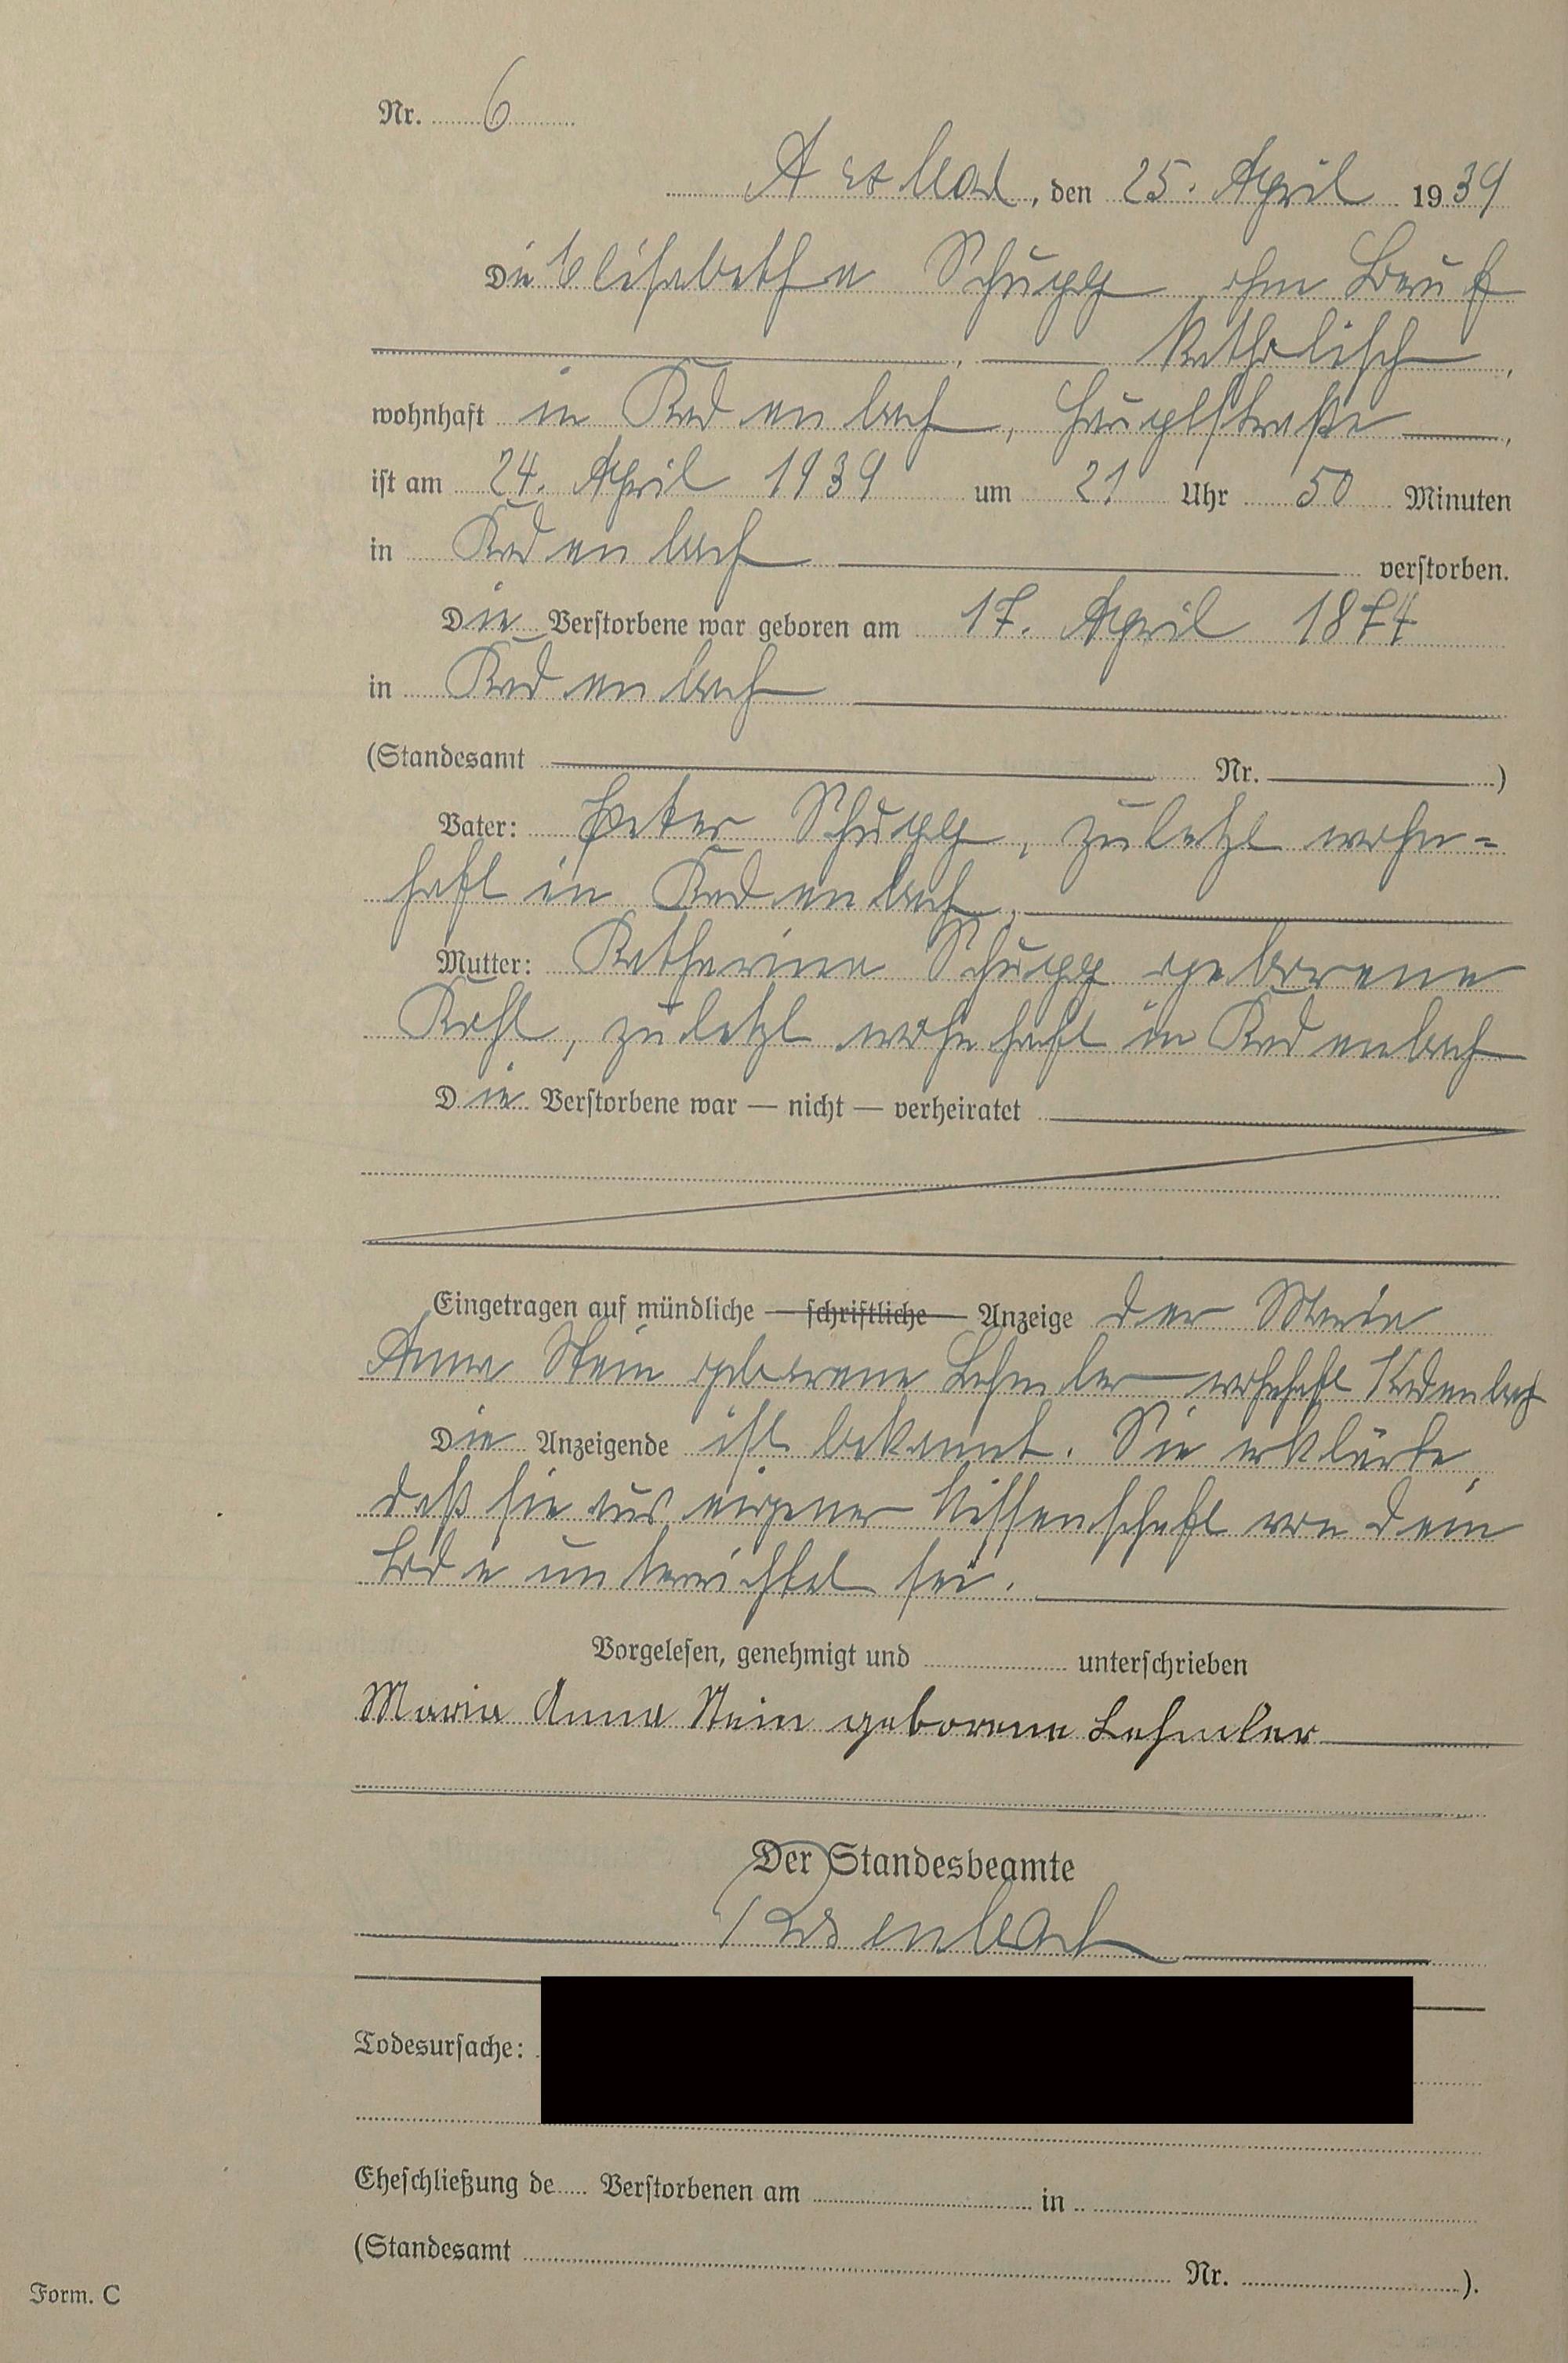 Nr. 6
Arzbach, den 25. April 1939
Die Elisabetha Schupp ohne Beruf
, katholisch,
wohnhaft in Kadenbach, Hauptstraße,
ist am 24. April 1939 um 21 Uhr 50 Minuten
in Kadenbach verstorben.
Die Verstorbene war geboren am 17. April 1874
in Kadenbach
(Standesamt Nr. )
Vater: Peter Schupp, zuletzt wohn=
haft in Kadenbach,
Mutter: Katharina Schupp geborene
Kohl, zuletzt wohnhaft in Kadenbach
Die Verstorbene war — nicht — verheiratet
Eingetragen auf mündliche — schriftliche — Anzeige der Maria
Anna Stein geborene Lehmler wohnhaft Kadenbach
Die Anzeigende ist bekannt. Sie erklärte,
daß sie aus eigener Wissenschaft von dem
Tode unterrichtet sei.
Vorgelesen, genehmigt und unterschrieben
Maria Anna Stein geborene Lehmler
Der Standesbeamte
Todesursache:
Eheschließung de Verstorbenen am in
(Standesamt Nr. ).
Form. C